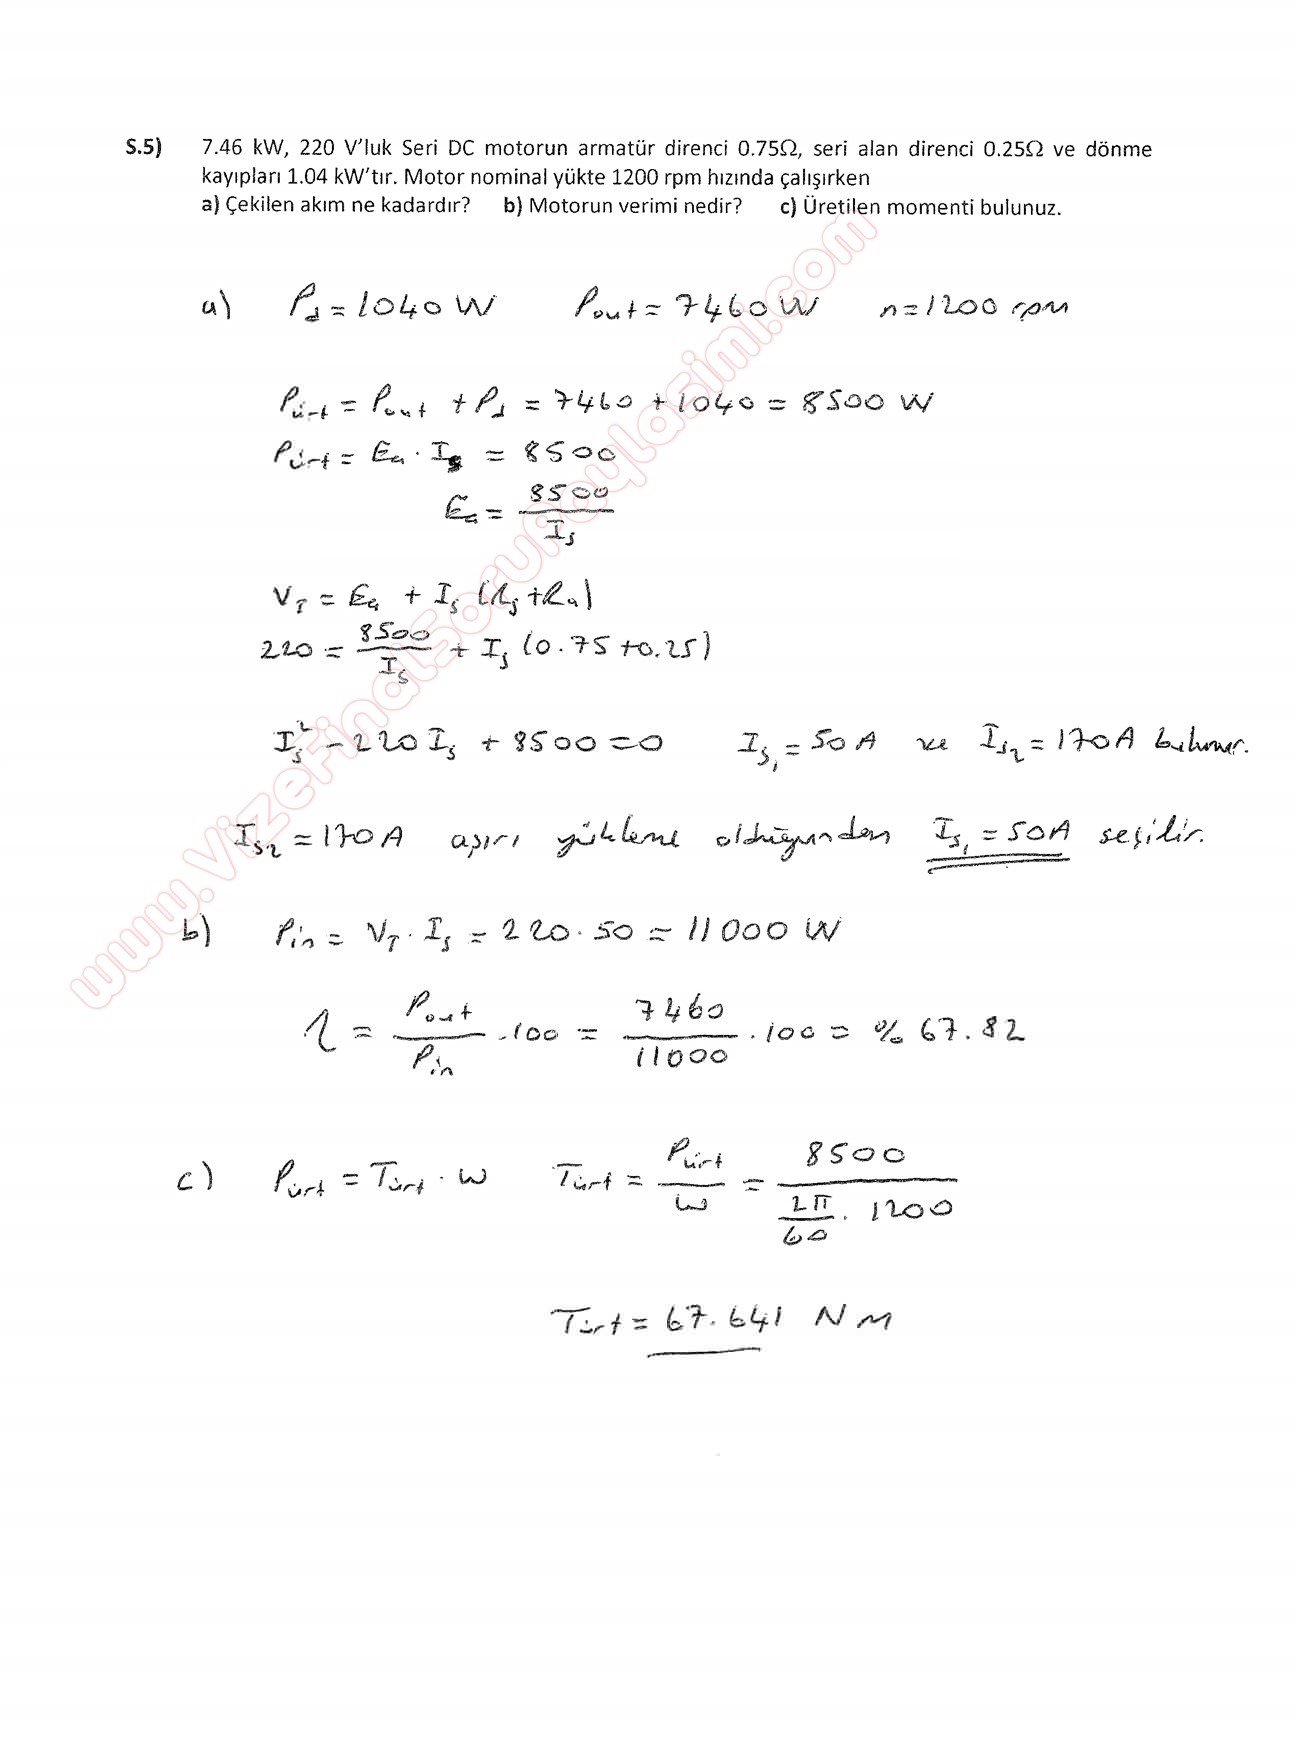 S.5) 7.46 kW, 220 V'luk Seri DC motorun armatür direnci 0.75Ω, seri alan direnci 0.25Ω ve dönme
kayıpları 1.04 kW'tır. Motor nominal yükte 1200 rpm hızında çalışırken
a) Çekilen akım ne kadardır? b) Motorun verimi nedir? c) Üretilen momenti bulunuz.
a) P_d = 1040 W P_out = 7460 W n = 1200 rpm
P_ürt = P_out + P_d = 7460 + 1040 = 8500 W
P_ürt = E_a . I_s = 8500
E_a = 8500 / I_s
V_T = E_a + I_s (R_s + R_a)
220 = 8500 / I_s + I_s (0.75 + 0.25)
I_s² - 220 I_s + 8500 = 0 I_s1 = 50 A ve I_s2 = 170 A bulunur.
I_s2 = 170 A aşırı yükleme olduğundan I_s1 = 50 A seçilir.
b) P_in = V_T . I_s = 220 . 50 = 11000 W
η = P_out / P_in . 100 = 7460 / 11000 . 100 = % 67.82
c) P_ürt = T_ürt . w T_ürt = P_ürt / w = 8500 / (2π/60 . 1200)
T_ürt = 67.641 N M
www.VizeFinalSoruPaylasimi.com